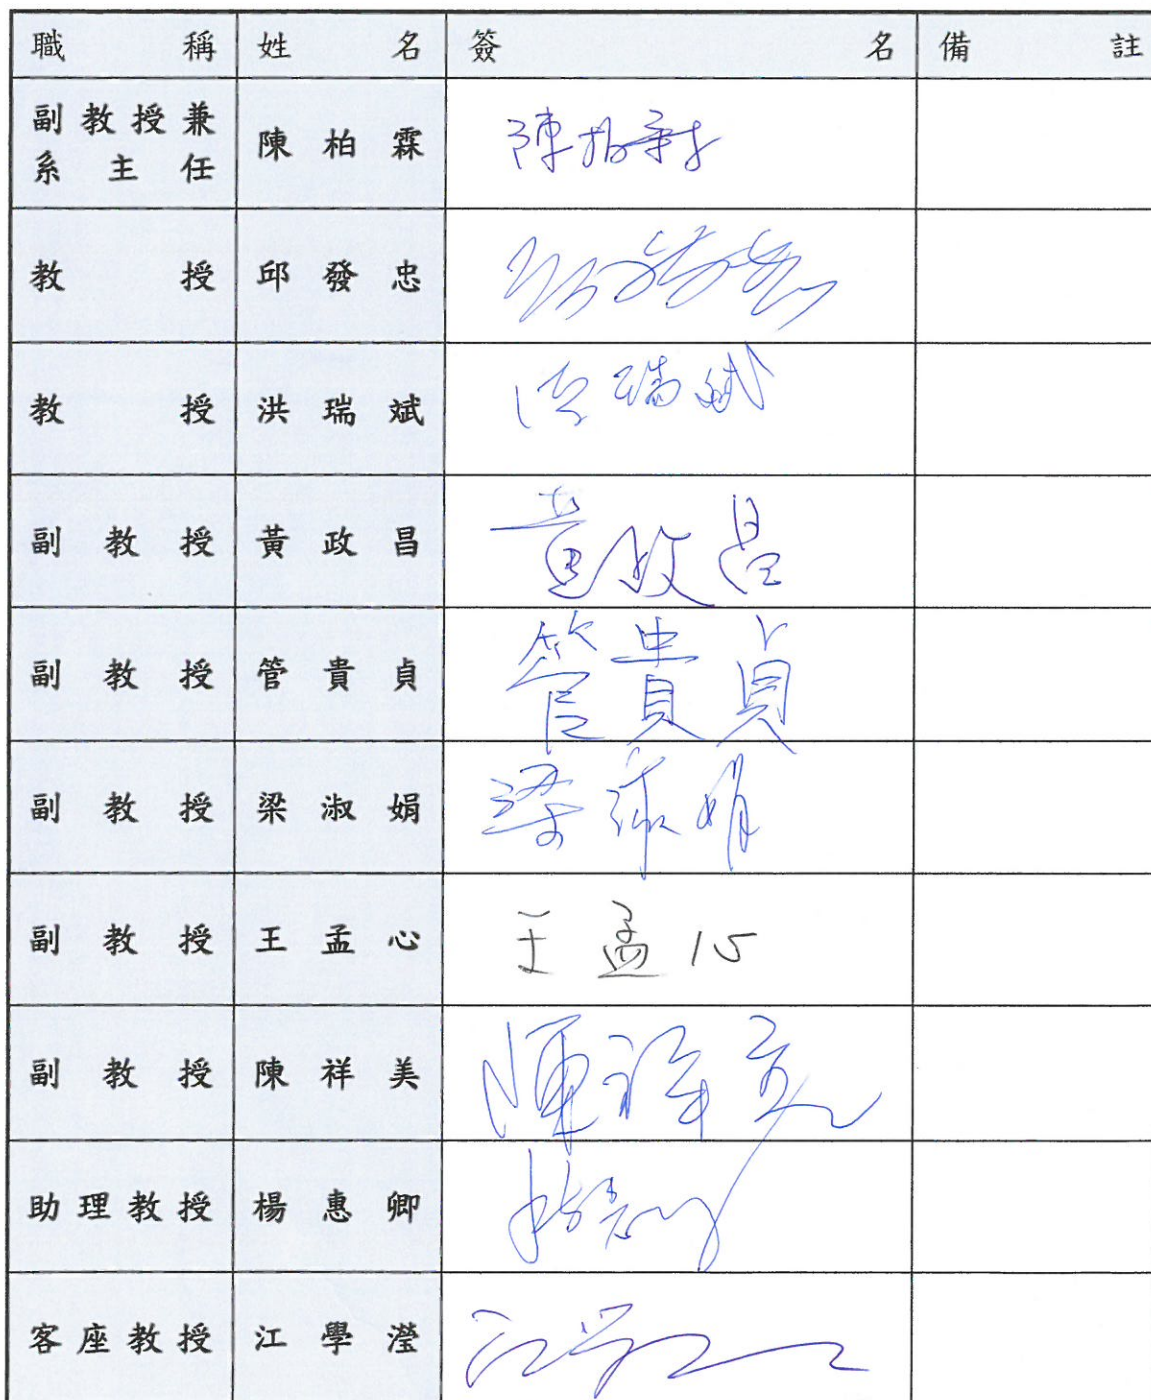 職稱 姓名 簽名 備註
副教授兼
系主任 陳柏霖 陳柏霖
教授 邱發忠 邱發忠
教授 洪瑞斌 洪瑞斌
副教授 黃政昌 黃政昌
副教授 管貴貞 管貴貞
副教授 梁淑娟 梁淑娟
副教授 王孟心 王孟心
副教授 陳祥美 陳祥美
助理教授 楊惠卿
客座教授 江學瀅